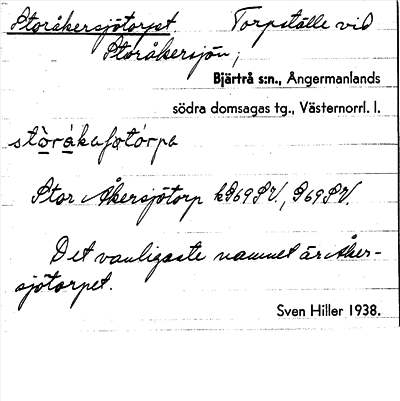 Storåkersjötorpet. Torpställe vid
Storåkersjön;
Bjärtrå s:n., Ångermanlands
södra domsagas tg., Västernorrl. l.
Stor Åkersjötorp
Det vanligaste namnet är Åker-
sjötorpet.
Sven Hiller 1938.